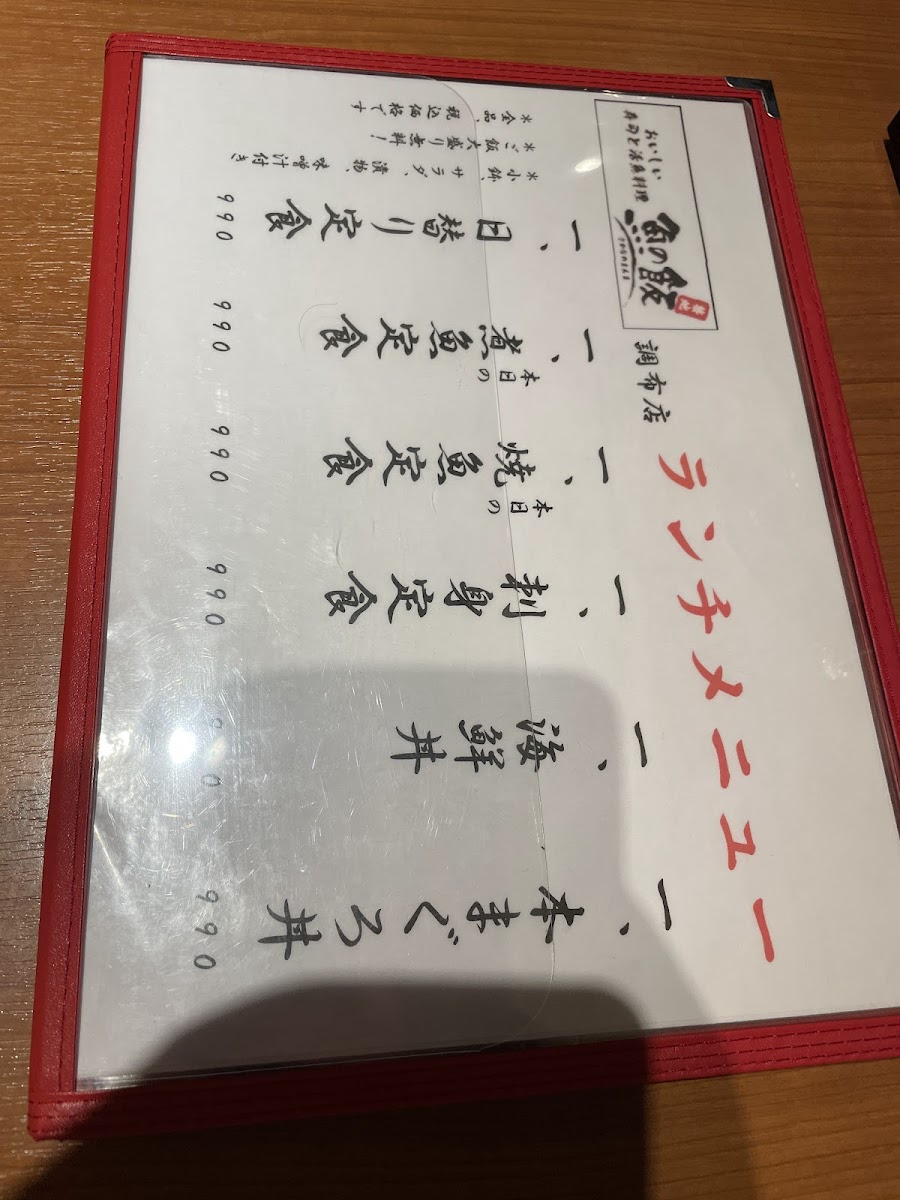 おいしい
寿司と活魚料理
魚の飯
調布店
ランチメニュー
一、本まぐろ丼 990
一、海鮮丼
一、刺身定食 990
一、本日の焼魚定食 990
一、本日の煮魚定食 990
一、日替り定食 990
＊小鉢、サラダ、漬物、味噌汁付き
＊ご飯大盛り無料！
＊全品、税込価格です